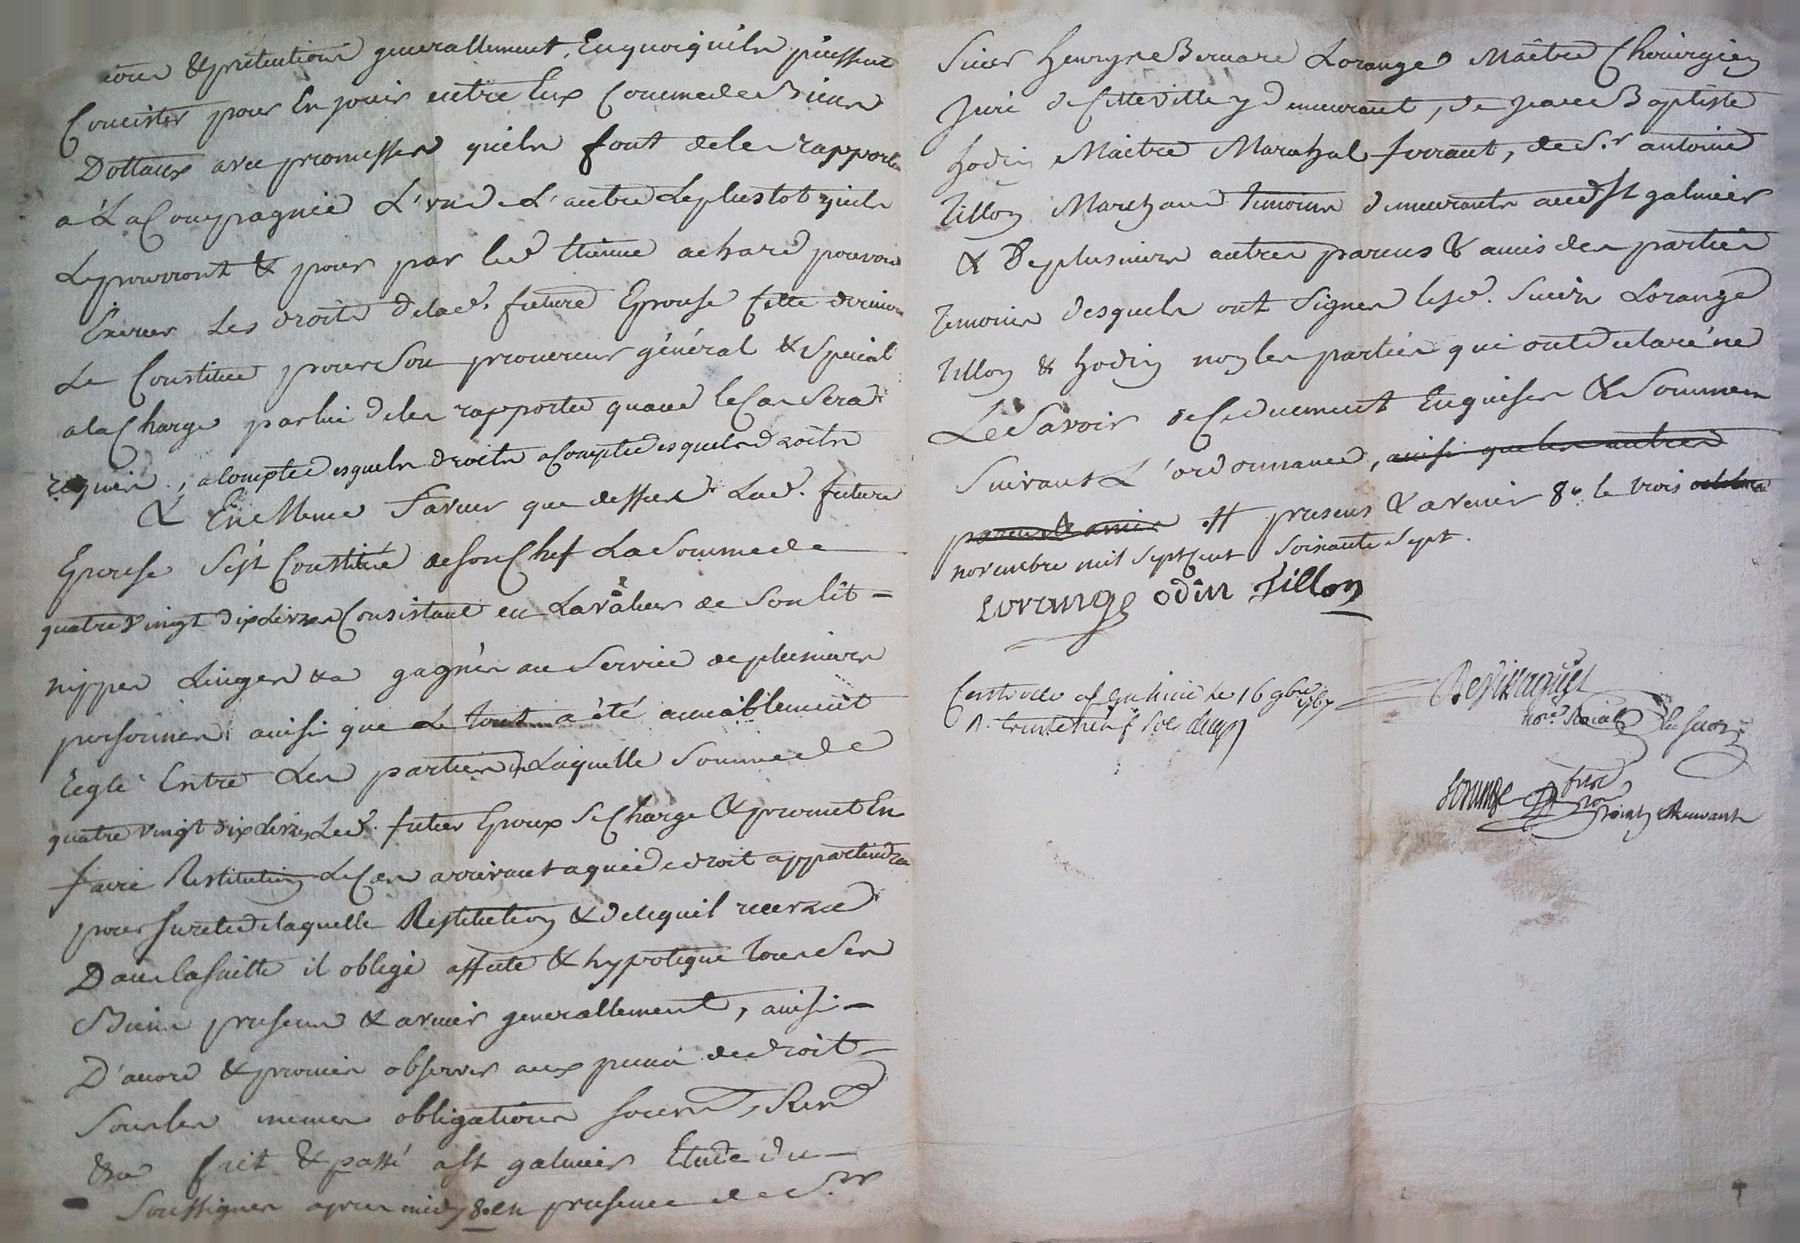 ions & prétentions generallement, Enquoiquils puissent
Concister pour En jouir entre Eux Comme de Biens
Dottaux avec promesses quils font de les rapporter
a La Compagnie L'un de L'autre Le plustot quils
Le pourront & pour par led Etienne achard pouvoir
Exercer Les droits de lad. future Epouse Cette derniere
Le Constitue pour Son procureur général & Special
a la Charge par lui de les rapporter quand le Cas Sera
requis, a Compte desquels droits a Compte desquels droits
& En Meme faveur que dessus Lad. future
Epouse S'est Constitué de Son Chef La Somme de
quatre Vingt dix Livres Consistant en La valeur de Son lit
nippes Linges & a gagnés au Service de plusieurs
personnes ainsi que Le tout a été amiablement
reglé Entre Les parties, de Laquelle Somme de
quatre Vingt dix Livres Led. futur Epoux Se Charge & promet En
faire Restitution Le Cas arrivant a qui de droit appartiendra
pour Sureté de laquelle Restitution & de ce quil recevra
Dans la Suitte il oblige affecte & hypoteque Tous Ses
Biens presens & avenir generallement, ainsi
D'acord & promis observer aux peines de droit
Sous les memes obligations Soum., Ren
&a fait & passé a St galmier Etude du
Soussigner apres midy & en presence de Sr
Sieur henry Bernard Lorange Maître Chirurgien
Juré de Cette Ville y demeurant, de Jean Baptiste
hodin Maitre Marechal ferrant, de Sr antoine
Tillon Marchand Temoins demeurants aud St galmier
& De plusieurs autres parens & amis des parties
Temoins desquels ont Signer lesd. Sieurs Lorange
Tillon & hodin non les parties qui ont declaré ne
Le Savoir de Ce duement Enquises & Sommées
Suivant L'ordonnance, ainsi que les autres
parens & amis presens & avenir le trois octobre
novembre mil Sept Cent Soixante Sept.
Lorange odin Tillon
Controllé a St galmier Le 16 9bre 1767
R. trente neuf Sols